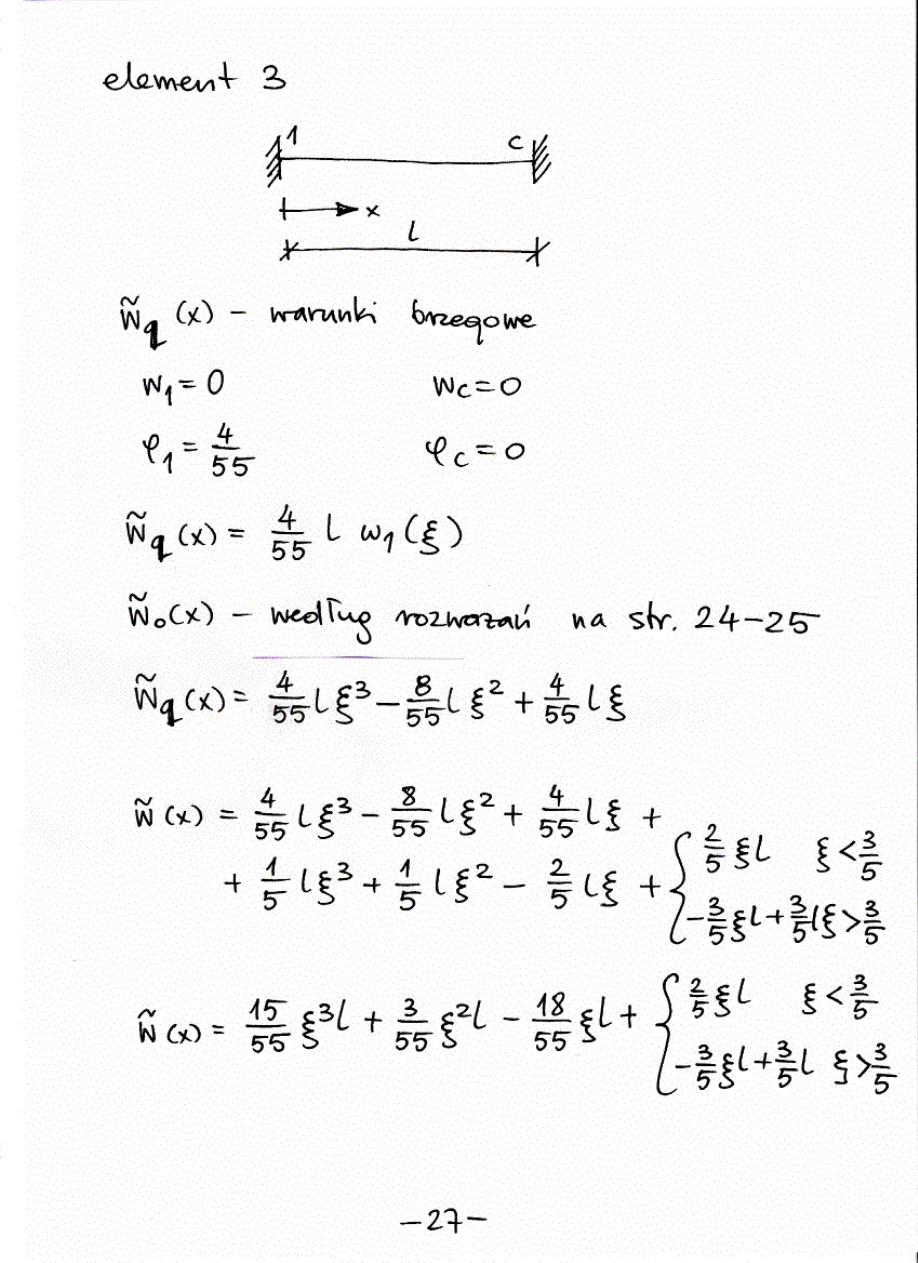 element 3
1 c
x
l
w̃q (x) – warunki brzegowe
w₁ = 0 wc = 0
φ₁ = 4/55 φc = 0
w̃q (x) = 4/55 l ω₁(ξ)
w̃₀(x) – według rozważań na str. 24–25
w̃q (x) = 4/55 l ξ³ – 8/55 l ξ² + 4/55 l ξ
w̃ (x) = 4/55 l ξ³ – 8/55 l ξ² + 4/55 l ξ +
+ 1/5 l ξ³ + 1/5 l ξ² – 2/5 l ξ + { 2/5 ξ l ξ < 3/5
–3/5 ξ l + 3/5 l ξ > 3/5
w̃ (x) = 15/55 ξ³ l + 3/55 ξ² l – 18/55 ξ l + { 2/5 ξ l ξ < 3/5
–3/5 ξ l + 3/5 l ξ > 3/5
–27–